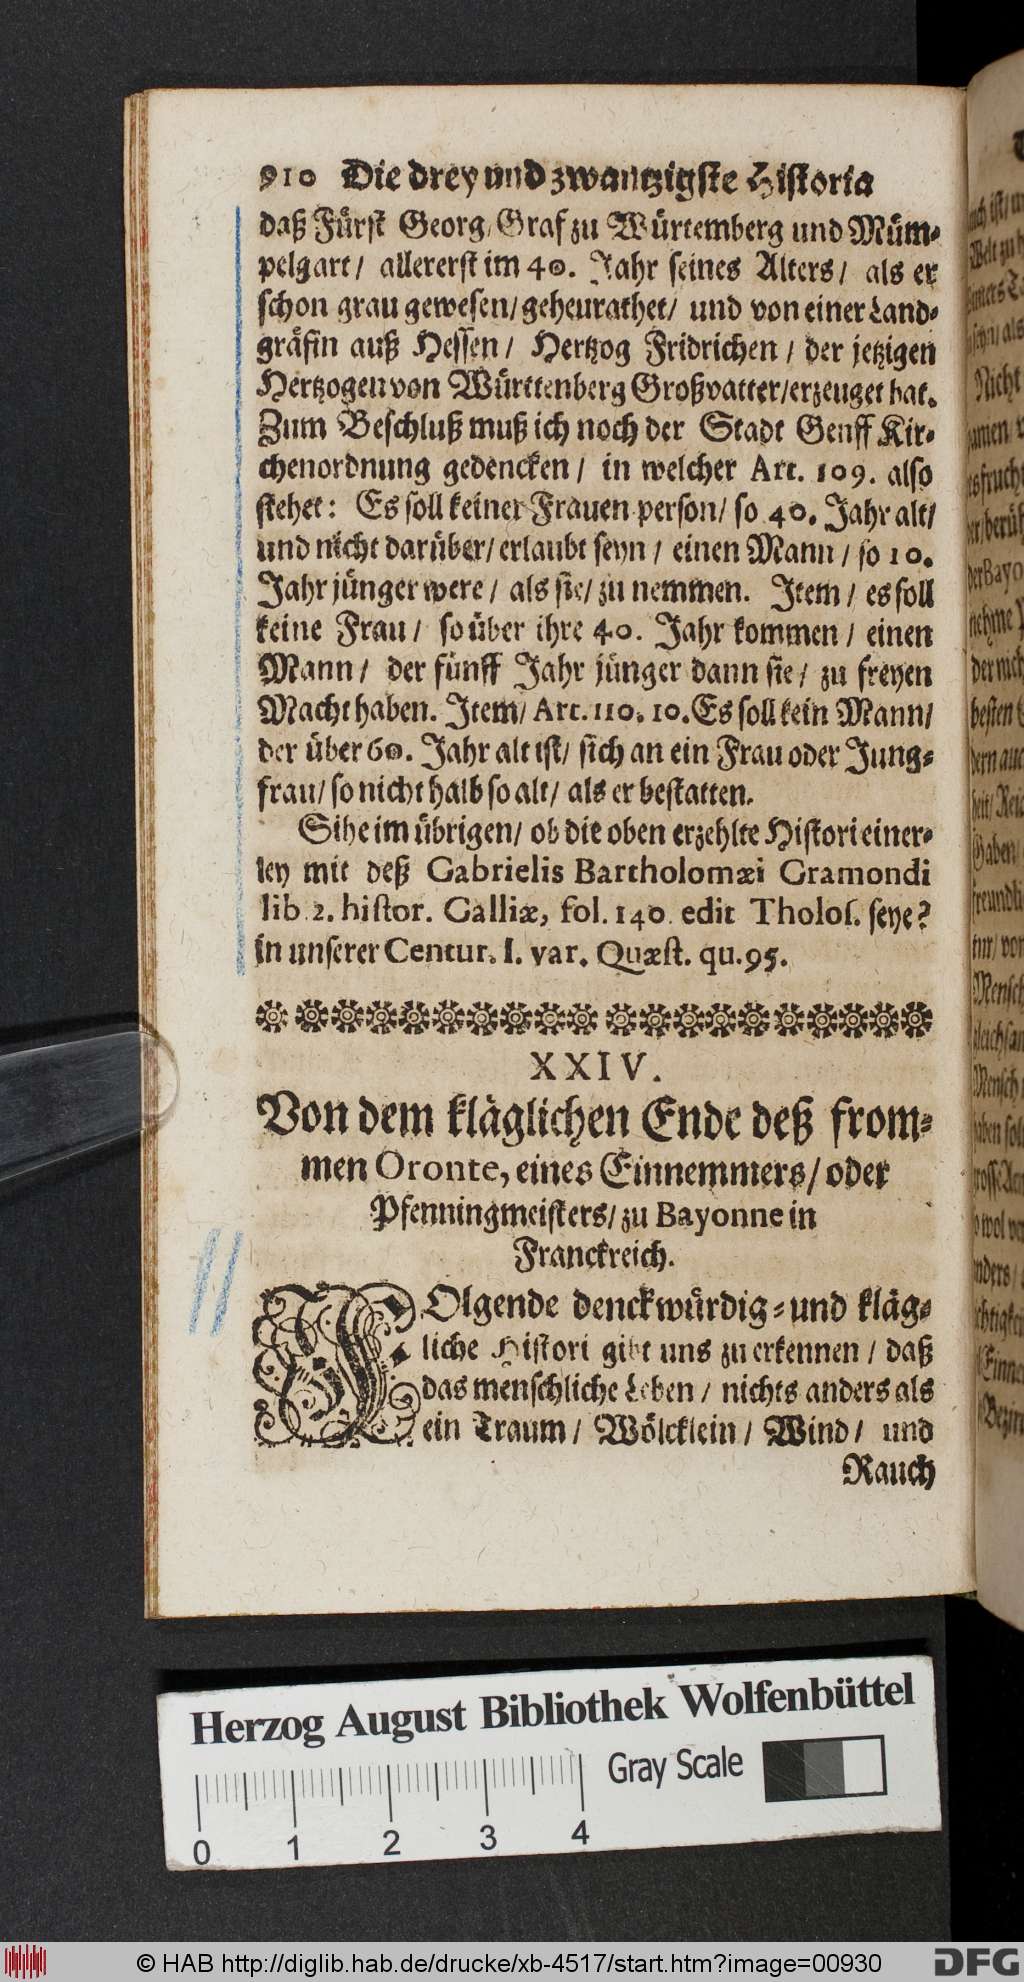 910 Die drey und zwantzigste Historia
daß Fürst Georg, Graf zu Würtemberg und Müm-
pelgart/ allererst im 40. Jahr seines Alters/ als er
schon grau gewesen/ geheurathet/ und von einer Land-
gräfin auß Hessen/ Hertzog Fridrichen/ der jetzigen
Hertzogen von Württenberg Großvatter/ erzeuget hat.
Zum Beschluß muß ich noch der Stadt Genff Kir-
chenordnung gedencken/ in welcher Art. 109. also
stehet: Es soll keiner Frauen person/ so 40. Jahr alt/
und nicht darüber/ erlaubt seyn/ einen Mann/ so 10.
Jahr jünger were/ als sie/ zu nemmen. Item/ es soll
keine Frau/ so über ihre 40. Jahr kommen/ einen
Mann/ der fünff Jahr jünger dann sie/ zu freyen
Macht haben. Item/ Art. 110. 10. Es soll kein Mann/
der über 60. Jahr alt ist/ sich an ein Frau oder Jung-
frau/ so nicht halb so alt/ als er bestatten.
Sihe im übrigen/ ob die oben erzehlte Histori einer-
ley mit deß Gabrielis Bartholomæi Gramondi
lib. 2. histor. Galliæ, fol. 140. edit Tholos. seye?
in unserer Centur. I. var. Quæst. qu. 95.
XXIV.
Von dem kläglichen Ende deß from-
men Oronte, eines Einnemmers/ oder
Pfenningmeisters/ zu Bayonne in
Franckreich.
FOlgende denckwürdig- und kläg-
liche Histori gibt uns zu erkennen/ daß
das menschliche Leben/ nichts anders als
ein Traum/ Wölcklein/ Wind/ und
Rauch
Herzog August Bibliothek Wolfenbüttel
Gray Scale
0 1 2 3 4
© HAB http://diglib.hab.de/drucke/xb-4517/start.htm?image=00930
DFG